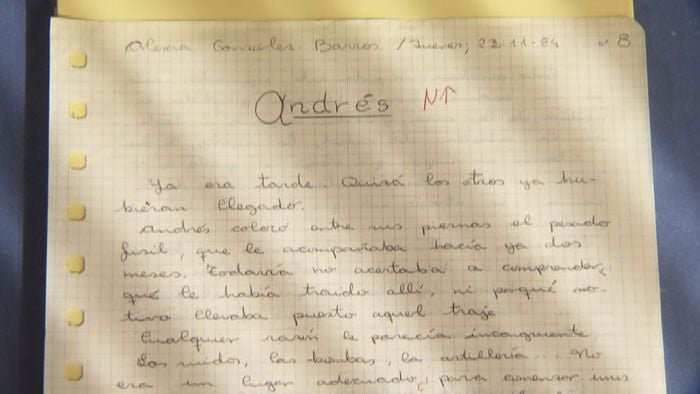 Alexia Gonzalez-Barros /Jueves, 22-11-84 nº 8
Andrés N↑
Ya era tarde. Quizá los otros ya hu-
bieran llegador.
Andrés colocó entre sus piernas el pesado
fusil, que le acompañaba hacía ya dos
meses. Todavía no acertaba a comprender,
qué le había traido allí, ni porqué mo-
tivo llevaba puesto aquel traje
Cualquier razón le parecía incongruente
Los ruidos, las bombas, la artillería... No
era un lugar adecuado, para comenzar unas